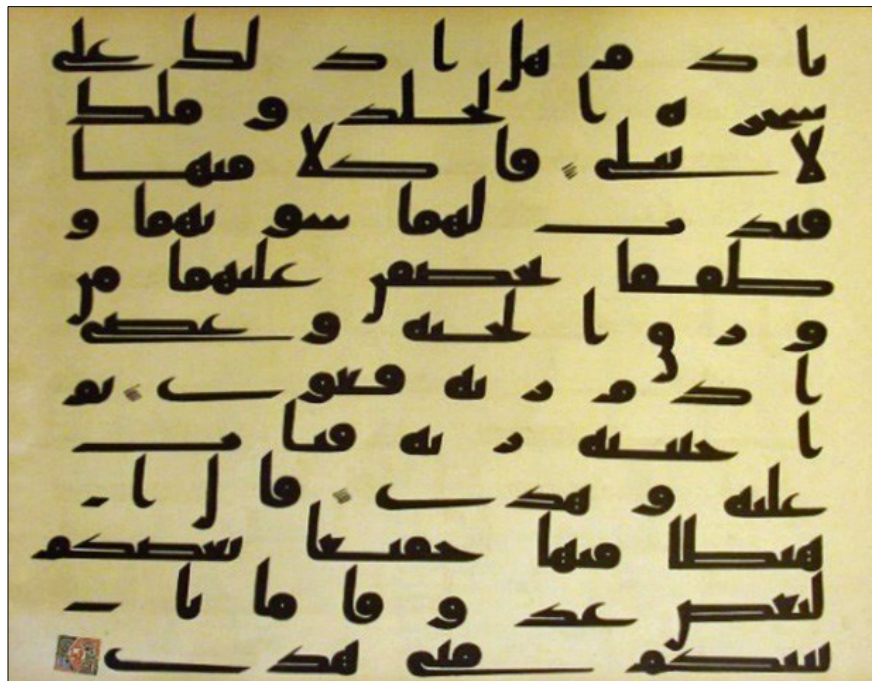 يادم هل ادلك على
شجره الخلد وملك
لا يبلى فاكلا منها
فبدت لهما سوتهما و
طفقا يخصفن عليهما من
ورق الجنه وعصى
ادم ربه فغوى ثم
اجتبيه ربه فتاب
عليه وهدى قال ا
هبطا منها جميعا بعضكم
لبعض عدو فاما يا
تينكم منى هدى